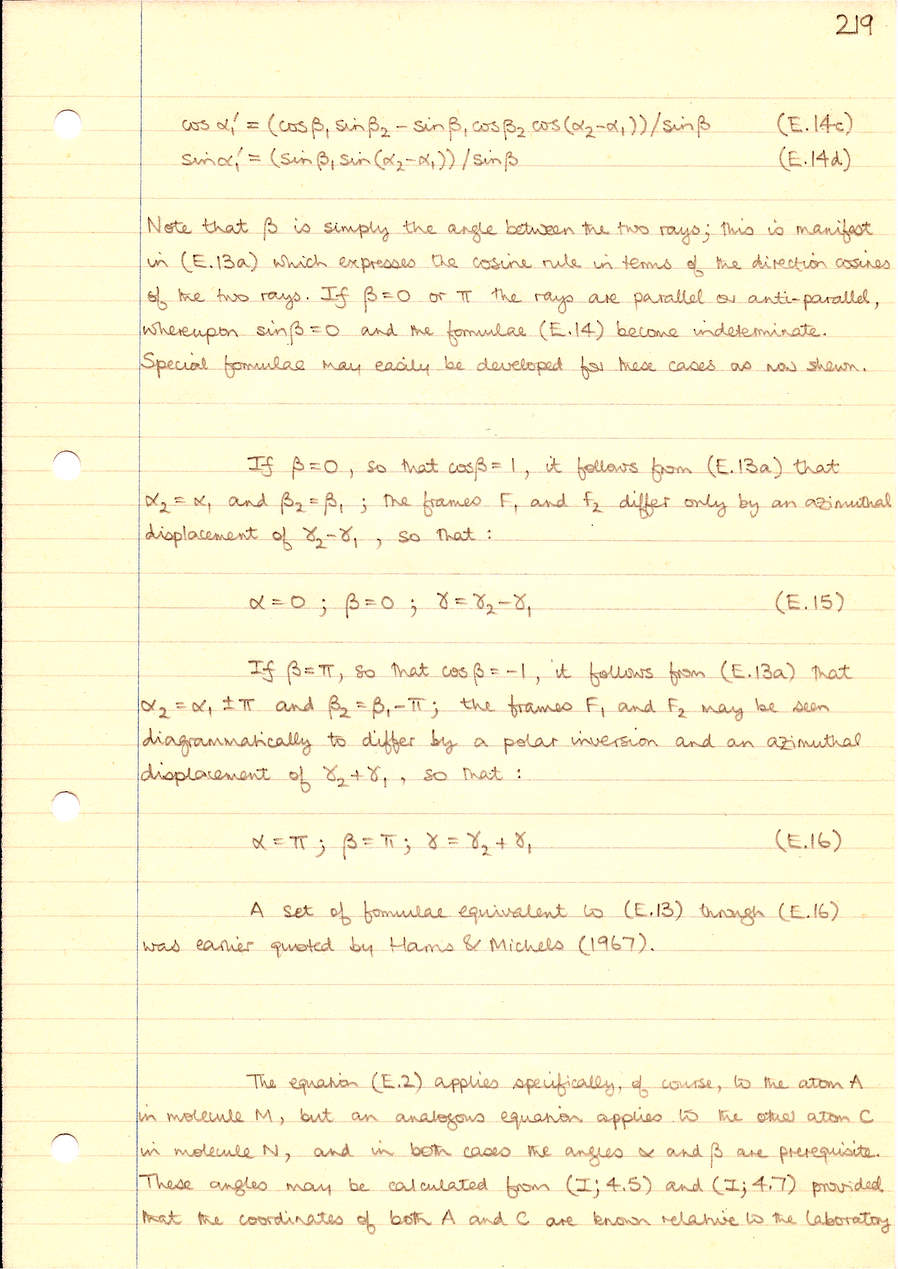 219
cos α₁′ = (cosβ₁ sinβ₂ − sinβ₁ cosβ₂ cos(α₂−α₁))/sinβ (E.14c)
sinα₁′ = (sinβ₁ sin(α₂−α₁))/sinβ (E.14d)
Note that β is simply the angle between the two rays; this is manifest
in (E.13a) which expresses the cosine rule in terms of the direction cosines
of the two rays. If β=0 or π the rays are parallel or anti-parallel,
whereupon sinβ=0 and the formulae (E.14) become indeterminate.
Special formulae may easily be developed for these cases as now shewn.
If β=0, so that cosβ=1, it follows from (E.13a) that
α₂=α₁ and β₂=β₁; the frames F₁ and F₂ differ only by an azimuthal
displacement of γ₂−γ₁, so that:
α=0; β=0; γ=γ₂−γ₁ (E.15)
If β=π, so that cosβ=−1, it follows from (E.13a) that
α₂=α₁±π and β₂=β₁−π; the frames F₁ and F₂ may be seen
diagrammatically to differ by a polar inversion and an azimuthal
displacement of γ₂+γ₁, so that:
α=π; β=π; γ=γ₂+γ₁ (E.16)
A set of formulae equivalent to (E.13) through (E.16)
was earlier quoted by Harris & Michels (1967).
The equation (E.2) applies specifically, of course, to the atom A
in molecule M, but an analogous equation applies to the other atom C
in molecule N, and in both cases the angles α and β are prerequisite.
These angles may be calculated from (I; 4.5) and (I; 4.7) provided
that the coordinates of both A and C are known relative to the laboratory